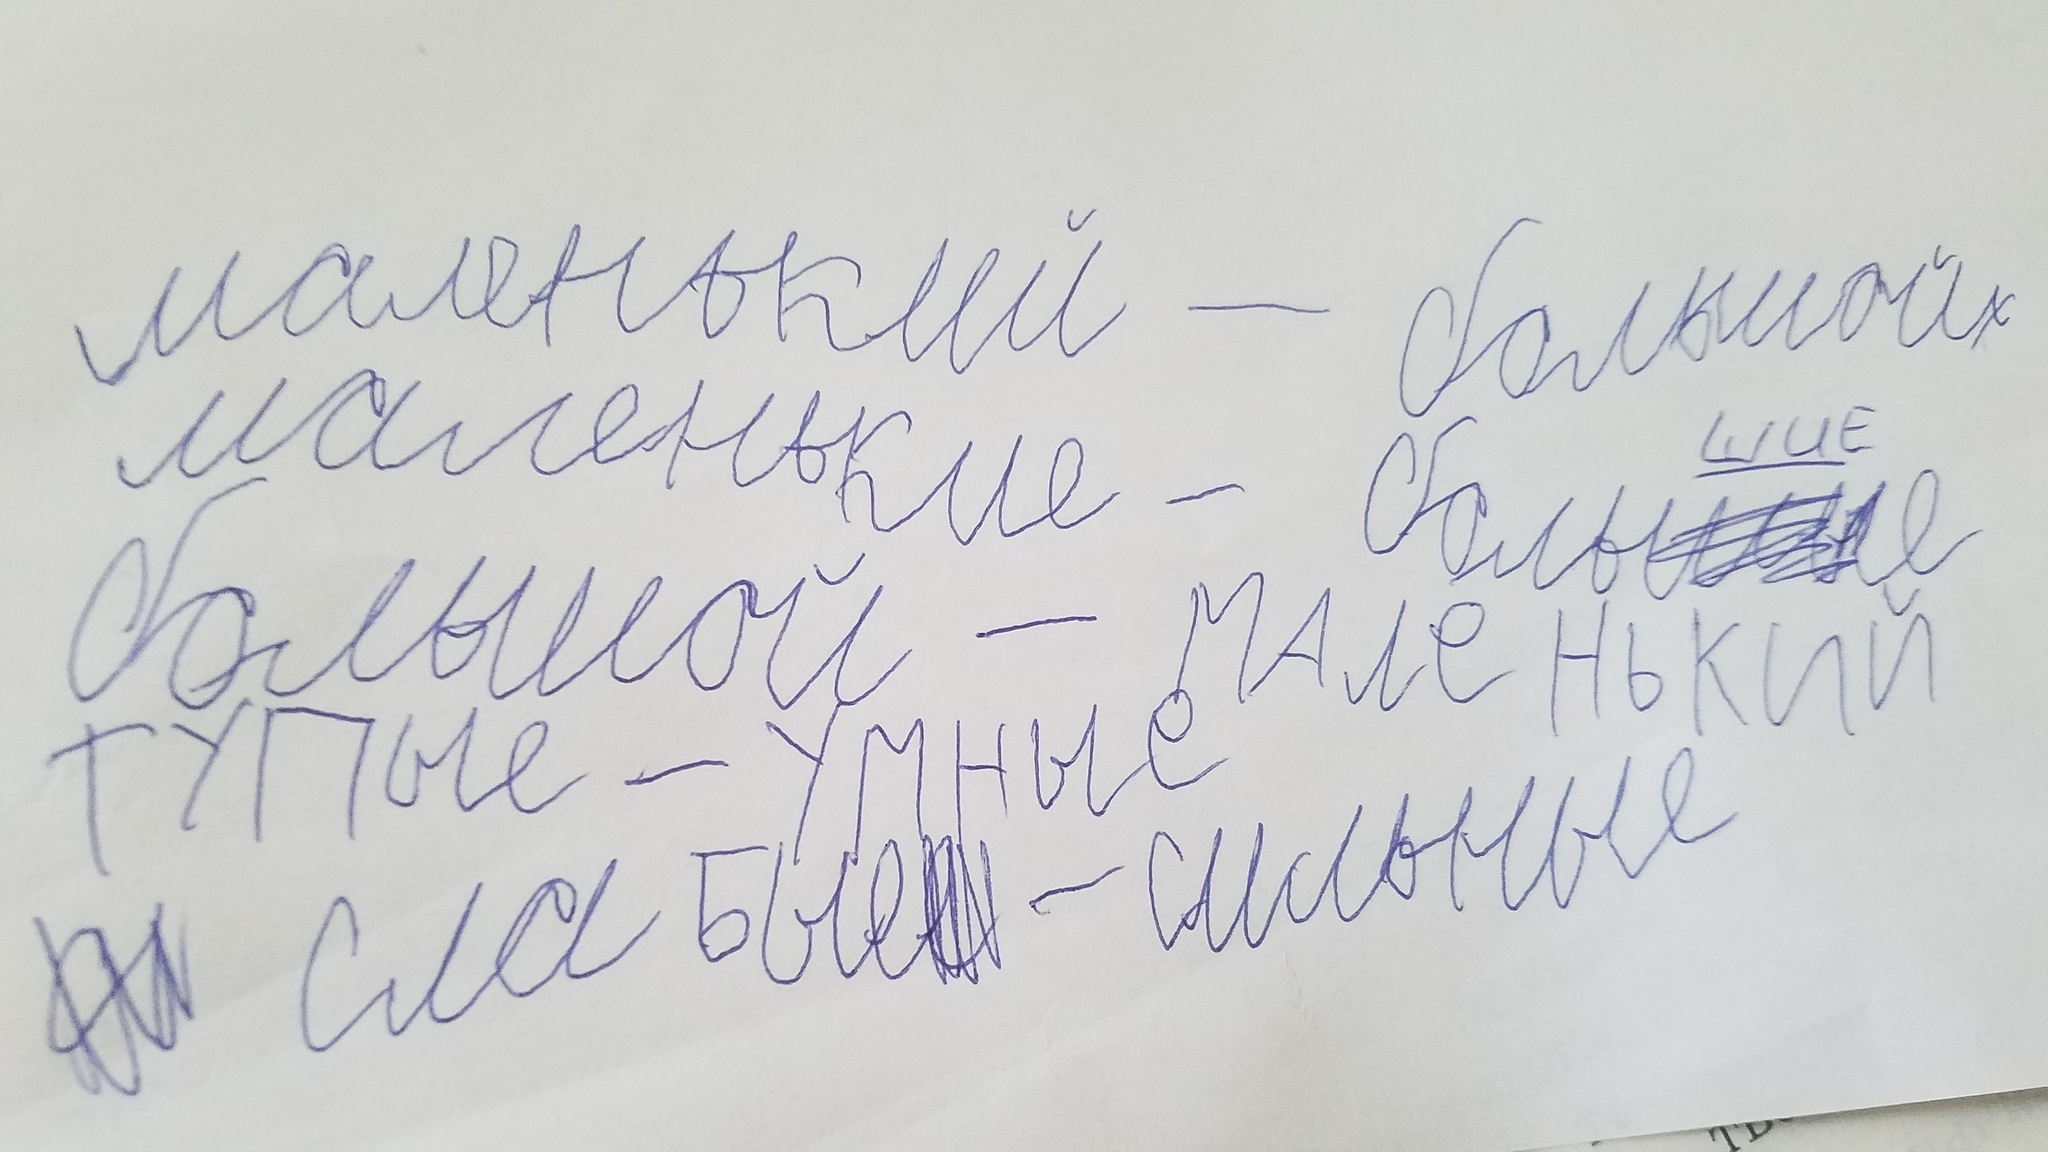 маленький – большой
маленькие – больше
шие
большой – МАЛеНЬКИЙ
ТУПые – УМНые
слабые – сильные